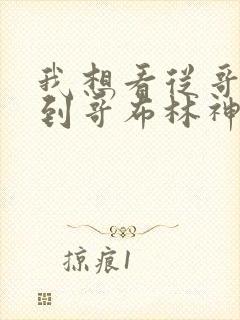 我想看从哥
到哥布林神
掠痕1